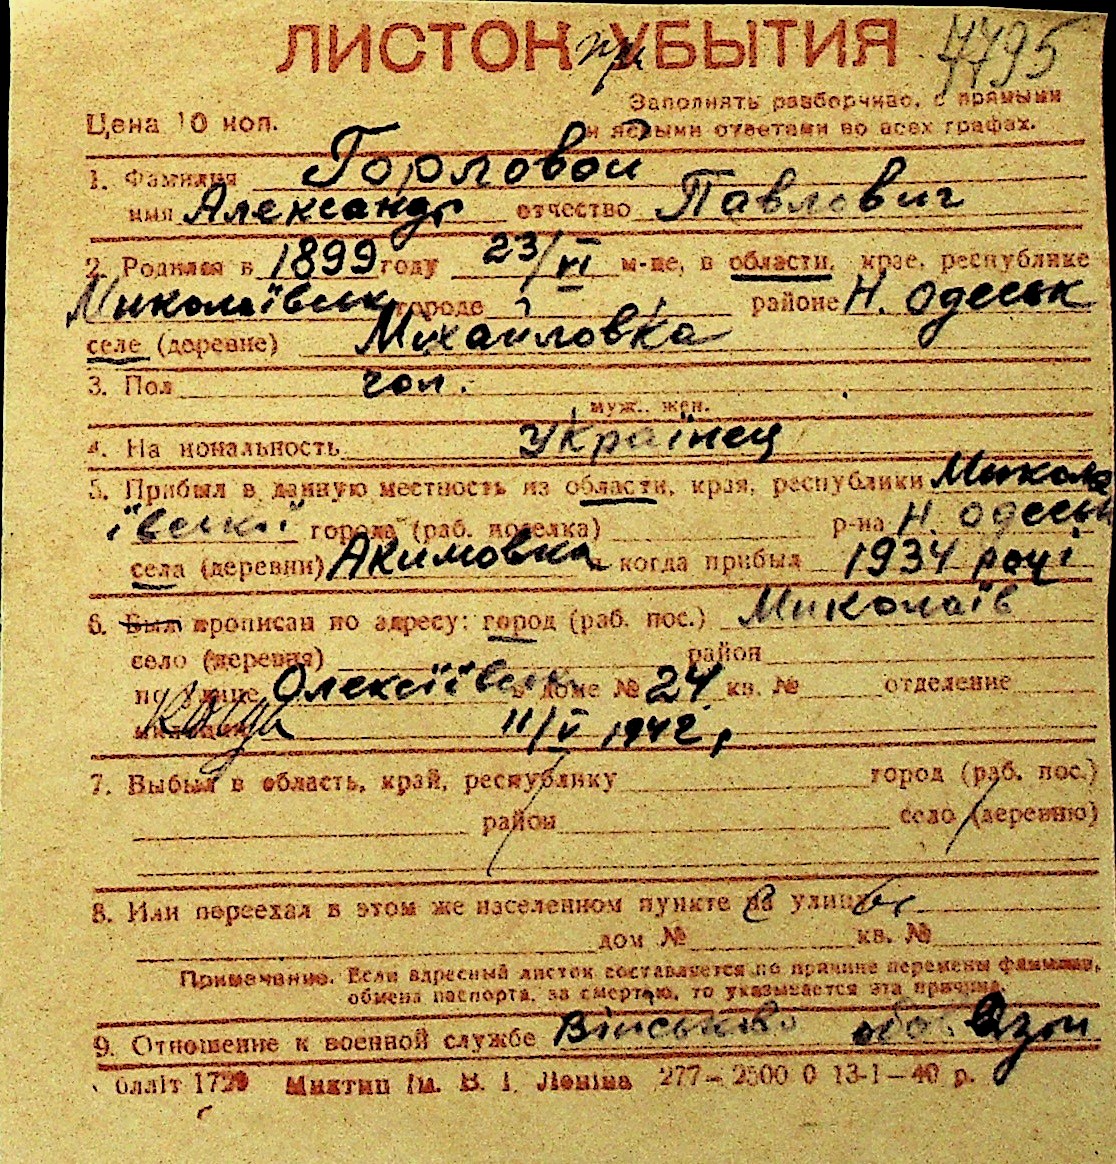 ЛИСТОК при УБЫТИЯ 7795
Заполнять разборчиво, с прямыми
Цена 10 коп. и ясными ответами во всех графах.
1. Фамилия Горловой
имя Александр отчество Павлович
2. Родился в 1899 году 23/VI м-це, в области, крае, республике
Миколаївськ городе районе Н. Одеськ
селе (деревне) Михайловка
3. Пол чол.
муж., жен.
4. Национальность Українец
5. Прибыл в данную местность из области, края, республики Микола
ївської города (раб. поселка) р-на Н. Одеськ
села (деревни) Акимовка когда прибыл 1934 році
6. Был прописан по адресу: город (раб. пос.) Миколаїв
село (деревня) район
по улице Олексіївськ в доме № 24 кв. № отделение
милиции Когда 11/V 1942 р.
7. Выбыл в область, край, республику город (раб. пос.)
район село (деревню)
8. Или переехал в этом же населенном пункте на улицу
дом № кв. №
Примечание. Если адресный листок составляется по причине перемены фамилии,
обмена паспорта, за смертью, то указывается эта причина.
9. Отношение к военной службе Військово
облліт 1729 Миктип ім. В. І. Леніна 277—2500 0 13-1—40 р.